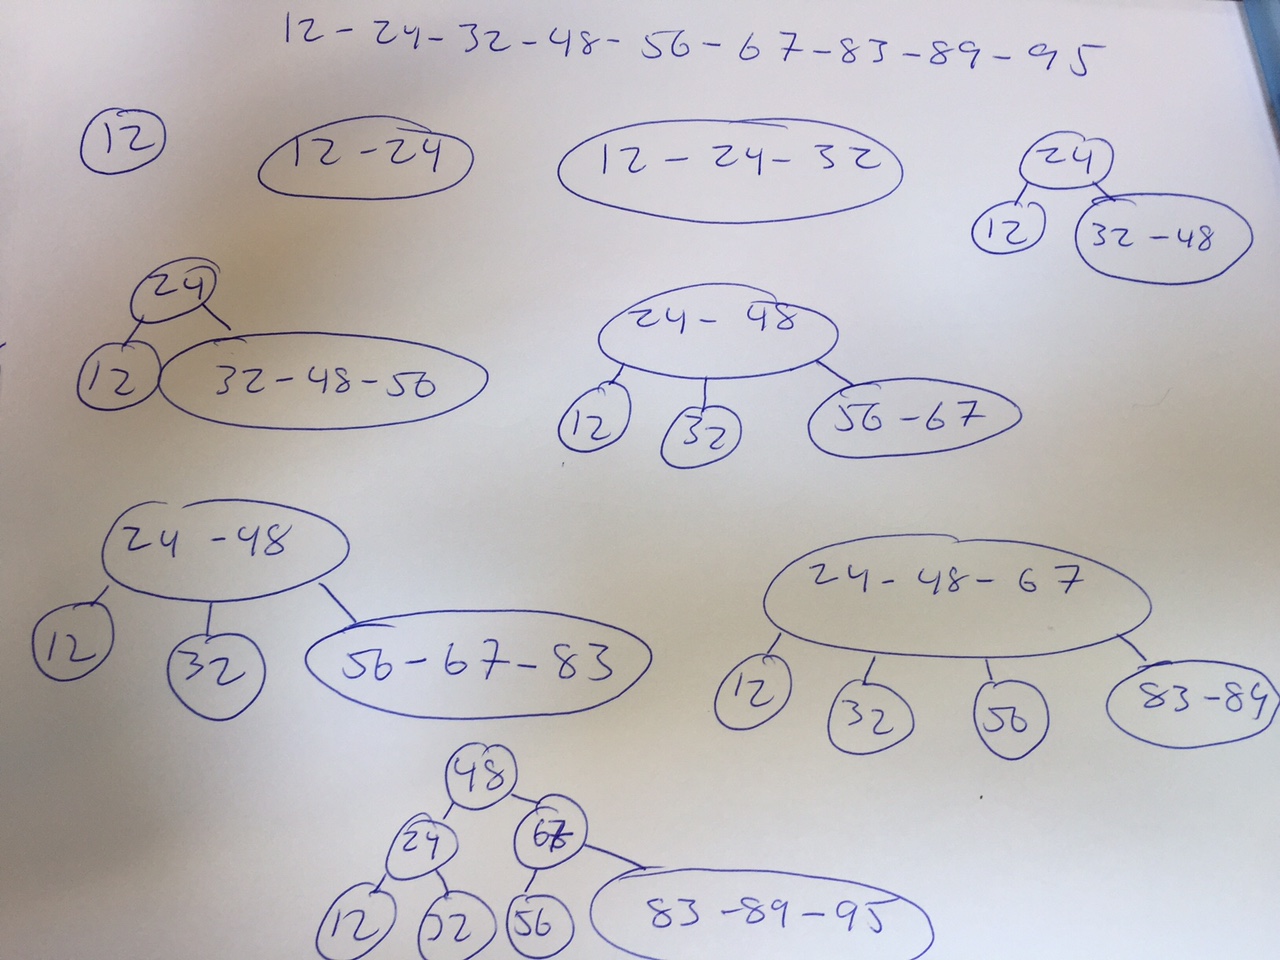 12 - 24 - 32 - 48 - 56 - 67 - 83 - 89 - 95
12
12 - 24
12 - 24 - 32
24
12
32 - 48
24
12
32 - 48 - 56
24 - 48
12
32
56 - 67
24 - 48
12
32
56 - 67 - 83
24 - 48 - 67
12
32
56
83 - 89
48
24
67
12
32
56
83 - 89 - 95